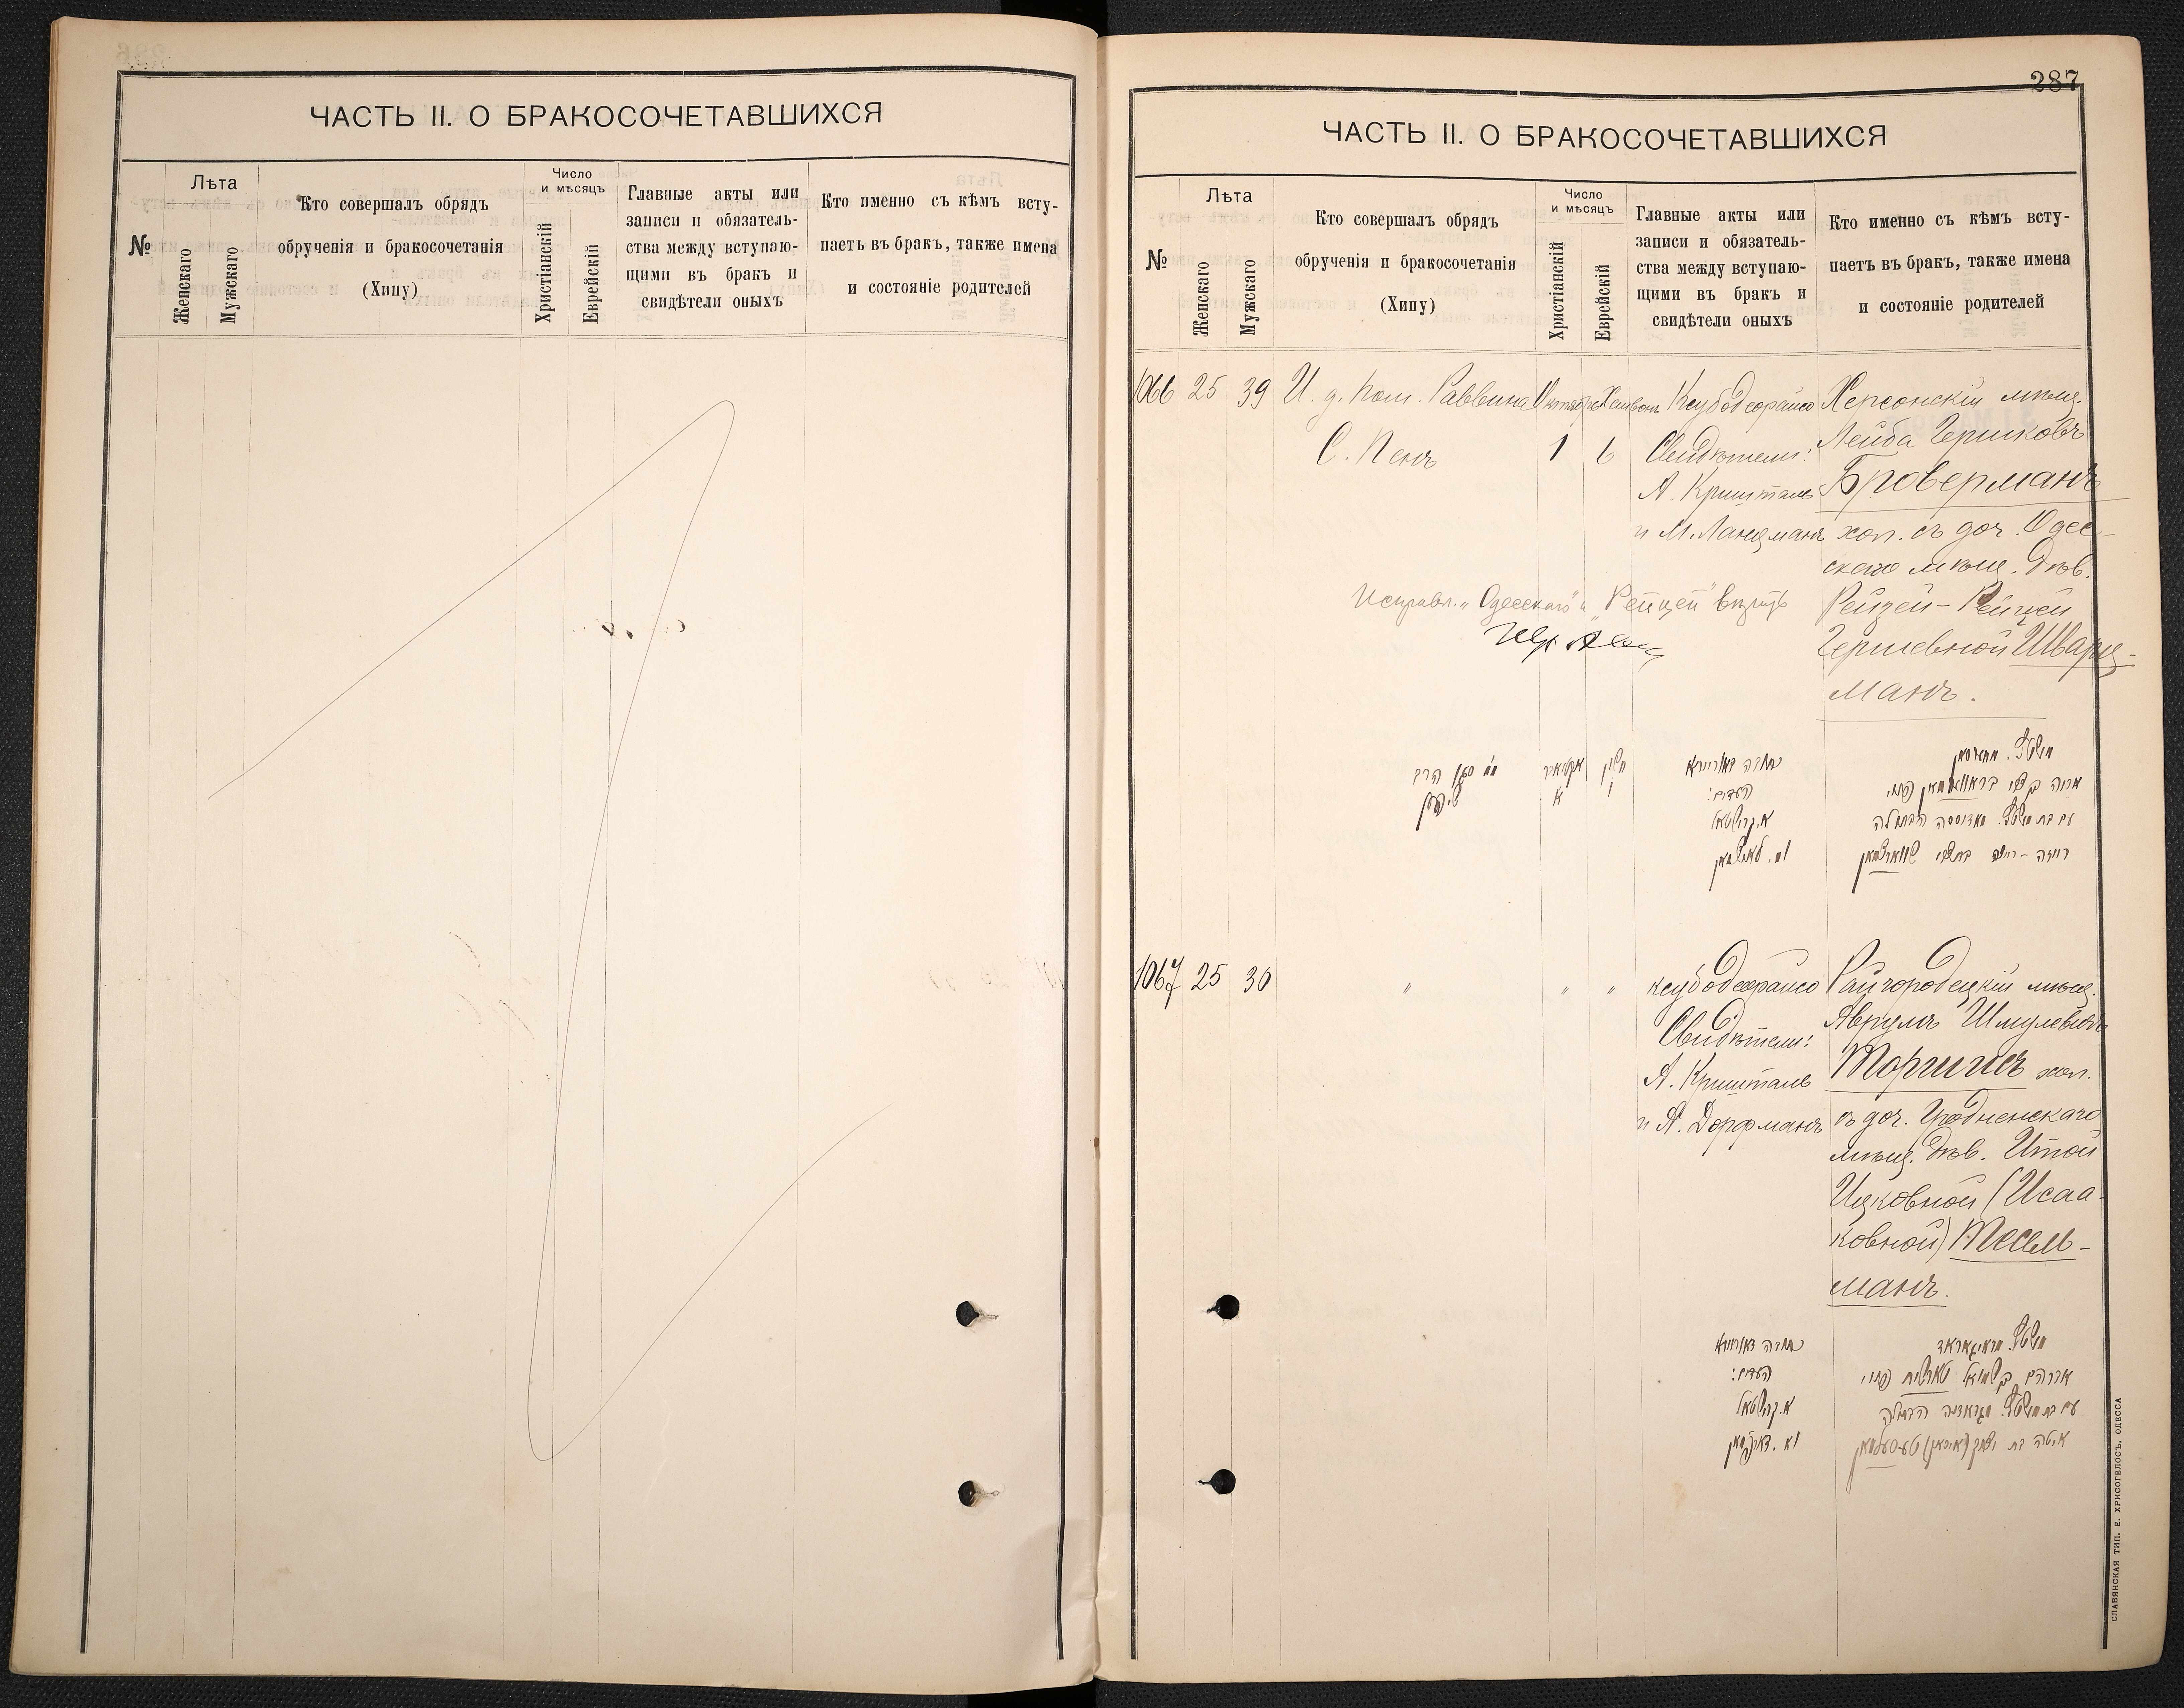 ЧАСТЬ II. О БРАКОСОЧЕТАВШИХСЯ
№
Лѣта
Женскаго
Мужскаго
Кто совершалъ обрядъ
обрученія и бракосочетанія
(Хипу)
Число
и мѣсяцъ
Христіанскій
Еврейскій
Главные акты или
записи и обязатель-
ства между вступаю-
щими въ бракъ и
свидѣтели оныхъ
Кто именно съ кѣмъ всту-
паетъ въ бракъ, также имена
и состояніе родителей
287
ЧАСТЬ II. О БРАКОСОЧЕТАВШИХСЯ
№
Лѣта
Женскаго
Мужскаго
Кто совершалъ обрядъ
обрученія и бракосочетанія
(Хипу)
Число
и мѣсяцъ
Христіанскій
Еврейскій
Главные акты или
записи и обязатель-
ства между вступаю-
щими въ бракъ и
свидѣтели оныхъ
Кто именно съ кѣмъ всту-
паетъ въ бракъ, также имена
и состояніе родителей
1066 25 39
И. д. пом. Раввина
С. Пенъ
Октября
1
Хешвонъ
6
Ксубодеорайсо
Свидѣтели:
А. Кришталь
и М. Ланцманъ
Херсонскій мѣщ.
Лейба Гершковъ
Броверманъ
хол. съ доч. Одес-
скаго мѣщ. дѣв.
Рейзей-Рейцей
Гершевной Шварц-
манъ.
Исправл. "Одесскаго" и "Рейцей" вѣрить
חשון
ו
א
כתובה דאורייתא
העדים:
א. קרישטאל
ומ. לאנצמאן
1067 25 30
" " "
ксубодеорайсо
Свидѣтели:
А. Кришталь
и А. Дорфманъ
Райгородецкій мѣщ.
Аврумъ Шмулевъ
Торгицъ хол.
съ доч. Гродненскаго
мѣщ. дѣв. Итой
Ицковной (Исаа-
ковной) Тесель-
манъ.
כתובה דאורייתא
העדים:
א. קרישטאל
וא. דארפמאן
אברהם בן שמואל הפנוי
СЛАВЯНСКАЯ ТИП. Е. ХРИСОГЕЛОСЪ. ОДЕССА